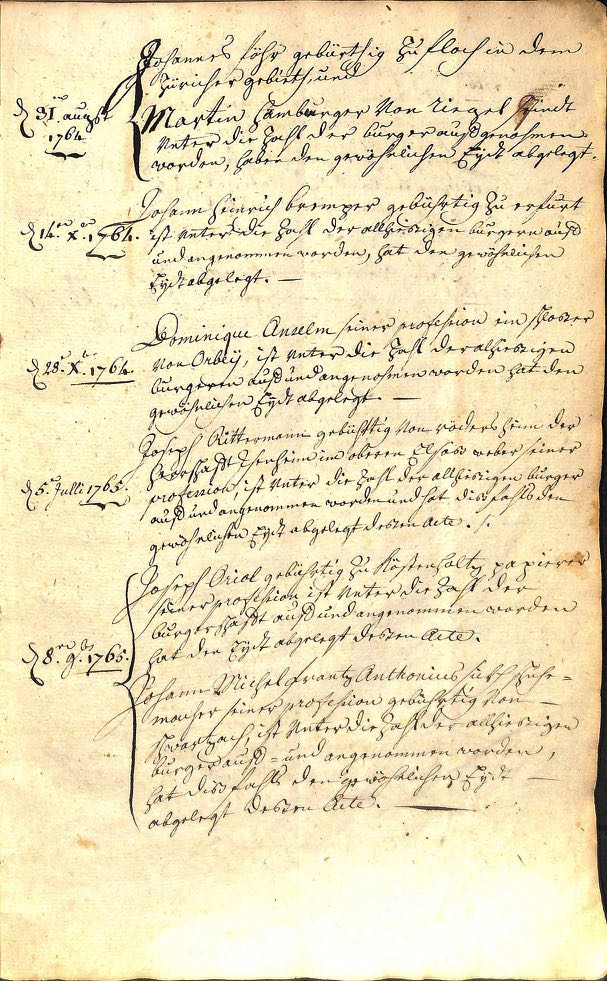 Johannes föhr gebürthig zu flach in dem
Züricher gebieth, und
d 31 augst
1764
Martin Hamburger Von riegel seindt
Unter die Zahl der burger auffgenohmen
worden, haben den gewöhnlichen Eydt abgelegt.
Johann Heinrich bremper gebührtig zu erfurt
d 14. X. 1764.
ist unter die Zahl der allhiesigen burgern auff
und angenommen worden, hat den gewöhnlichen
Eydt abgelegt. —
Dominique Anselm seiner profession ein schlosser
d 28. X. 1764.
Von Orbeÿ, ist unter die Zahl der allhiesigen
burgeren auff und angenohmen worden hat den
gewöhnlichen Eydt abgelegt. —
Joseph Rittermann gebührtig Von rödersheim der
herrschafft Isenheim im oberen Elsas weber seiner
d 5. Julli 1765.
profession, ist unter die Zahl der allhiesigen burger
auff und angenommen worden und hat dissfahls den
gewöhnlichen Eydt abgelegt dessen Acte. /.
Joseph Oriol gebührtig zu Köstenholtz papierer
seiner profession ist unter die Zahl der
burgerschafft auff und angenommen worden
hat den Eydt abgelegt dessen Acte.
d 8. 9. 1765.
Johann Michel frantz Anthonius schuhe=
macher seiner profession gebührtig Von —
schwartzach, ist unter die Zahl der allhiesigen
burger auff= und angenommen worden,
hat dissfahls den gewöhnlichen Eydt —
abgelegt dessen Acte. —